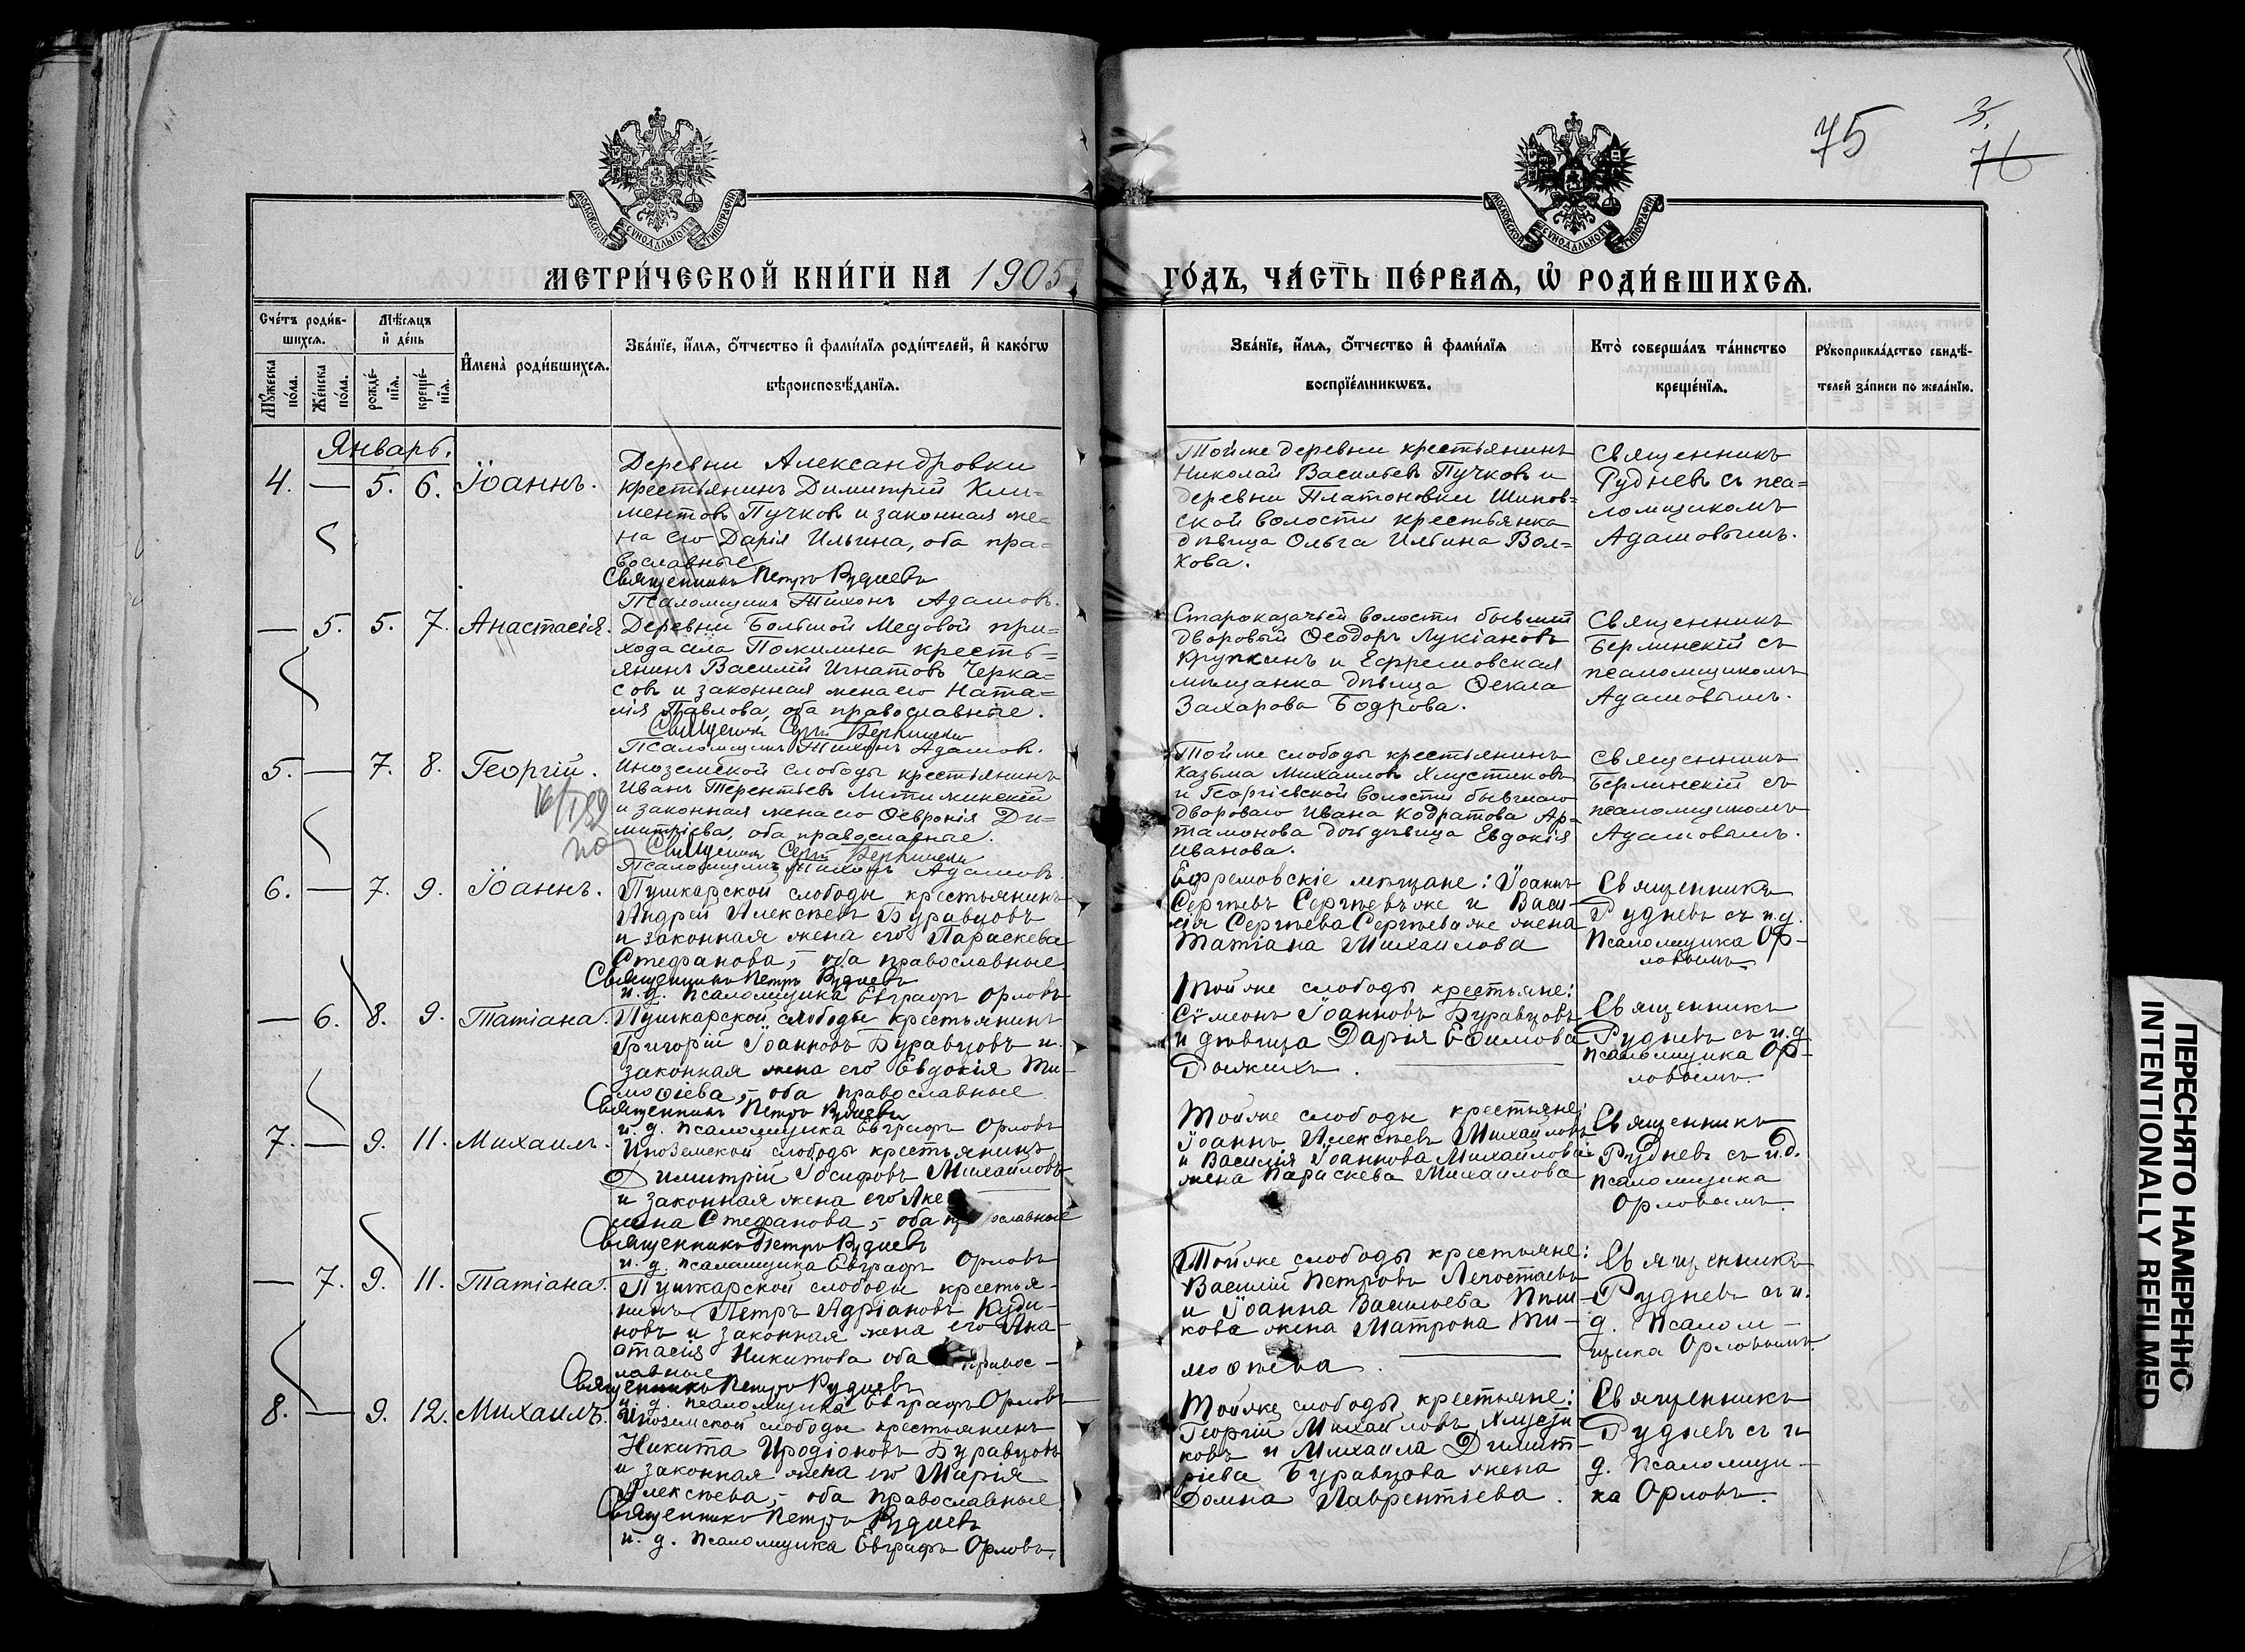 75
3.
76
МОСКОВСКОЙ СУНОДАЛЬНОЙ ТИПОГРАФІИ
МОСКОВСКОЙ СУНОДАЛЬНОЙ ТИПОГРАФІИ
МЕТРИ́ЧЕСКОЙ КНИ́ГИ НА 1905
ГО́ДЪ, ЧА́СТЬ ПЕ́РВАѦ, Ѡ҆ РОДИ́ВШИХСѦ.
Сче́тъ роди́в-
шихсѧ.
Мꙋ́жеска по́ла.
Же́нска по́ла.
Мѣ́сѧцъ и҆ де́нь
рожде́-нїѧ.
креще́-нїѧ.
И҆мена̀ роди́вшихсѧ.
Зва́нїе, и҆́мѧ, ѻ҆́тчество и҆ фами́лїѧ роди́телей, и҆ како́гѡ
вѣроисповѣ́данїѧ.
Зва́нїе, и҆́мѧ, ѻ҆́тчество и҆ фами́лїѧ
воспрїе́мникѡвъ.
Кто̀ соверша́лъ та́инство
креще́нїѧ.
Рꙋкоприкла́дство свидѣ́-
телей за́писи по жела́нїю.
Январь.
4. — 5. 6. Іоаннъ.
Деревни Александровки
крестьянинъ Димитрій Кли-
ментовъ Пучковъ и законная же-
на его Дарія Ильина, оба пра-
вославные
Священникъ Петръ Рудневъ
Псаломщикъ Тихонъ Адамовъ.
Тойже деревни крестьянинъ
Николай Васильевъ Пучковъ и
деревни Платоновки Шипов-
ской волости крестьянка
дѣвица Ольга Ильина Вол-
кова.
Священникъ
Рудневъ съ пса-
ломщикомъ
Адамовымъ.
— 5. 5. 7. Анастасія.
Деревни Большой Медовой при-
хода села Пожилина кресть-
янинъ Василій Игнатовъ Черка-
совъ и законная жена его Ната-
лія Павлова, оба православные.
Священникъ Сергій Берлинскій
Псаломщикъ Тихонъ Адамовъ.
Староказачьей волости бывшій
дворовый Ѳеодоръ Лукіановъ
Крупкинъ и Ефремовская
мѣщанка дѣвица Ѳекла
Захарова Бодрова.
Священникъ
Берлинскій съ
псаломщикомъ
Адамовымъ.
5. — 7. 8. Георгій.
Иноземской слободы крестьянинъ
Иванъ Терентьевъ
и законная жена его Ѳевронія Ди-
митріева, оба православные.
Священникъ Сергій Берлинскій
Псаломщикъ Тихонъ Адамовъ.
Тойже слободы крестьянинъ
Казьма Михаиловъ Хлустиковъ
и Георгіевской волости бывшаго
двороваго Ивана Кодратова Ар-
тамонова дочь дѣвица Евдокія
Иванова.
Священникъ
Берлинскій съ
псаломщикомъ
Адамовымъ.
6. — 7. 9. Іоаннъ.
Пушкарской слободы крестьянинъ
Андрей Алексѣевъ Буравцовъ
и законная жена его Параскева
Стефанова, – оба православные
Священникъ Петръ Рудневъ
и. д. псаломщика Евграфъ Орловъ
Ефремовскіе мѣщане: Іоаннъ
Сергѣевъ Сергѣевъ же и Васи-
лія Сергѣева Сергѣева же жена
Татіана Михаилова
Священникъ
Рудневъ съ и.д.
псаломщика Ор-
ловымъ.
— 6. 8. 9. Татіана.
Пушкарской слободы крестьянинъ
Григорій Іоанновъ Буравцовъ и
законная жена его Евдокія Ти-
моѳіева, – оба православные
Священникъ Петръ Рудневъ
и. д. псаломщика Евграфъ Орловъ
Тойже слободы крестьяне:
Сѵмеонъ Іоанновъ Буравцовъ
и дѣвица Дарія Еѳимова
Священникъ
Рудневъ съ и.д
псаломщика Ор-
ловымъ.
7. — 9. 11. Михаилъ.
Иноземской слободы крестьянинъ
Димитрій Іосифовъ Михайловъ
и законная жена его
Стефанова, – оба православные
Священникъ Петръ Рудневъ
и. д. псаломщика Евграфъ Орловъ
Тойже слободы крестьяне:
Іоаннъ Алексѣевъ Михайловъ
и Василія Іоаннова Михайлова
жена Параскева Михаилова
Священникъ
Рудневъ съ и.д.
псаломщика
Орловымъ.
— 7. 9. 11. Татіана.
Пушкарской слободы крестья-
нинъ Петръ Адріановъ Куди-
новъ и законная жена его Ана-
стасія Никитова оба правос-
лавные
Священникъ Петръ Рудневъ
и. д. псаломщика Евграфъ Орловъ
Тойже слободы крестьяне:
Василій Петровъ Легостаевъ
и Іоанна Васильева
жена Матрона Ти-
моѳеева.
Священникъ
Рудневъ съ и.
д. псалом-
щика Орловымъ.
8. — 9. 12. Михаилъ.
Иноземской слободы крестьянинъ
Никита Иродіоновъ Буравцовъ
и законная жена его Марія
Алексѣева, – оба православные
Священникъ Петръ Рудневъ
и. д. псаломщика Евграфъ Орловъ.
Тойже слободы крестьяне:
Георгій Михайловъ Хлусти-
ковъ и Михаила Димит-
ріева Буравцова жена
Домна Лаврентіева.
Священникъ
Рудневъ съ и
д. псаломщи-
ка Орловъ.
ПЕРЕСНЯТО НАМЕРЕННО
INTENTIONALLY REFILMED